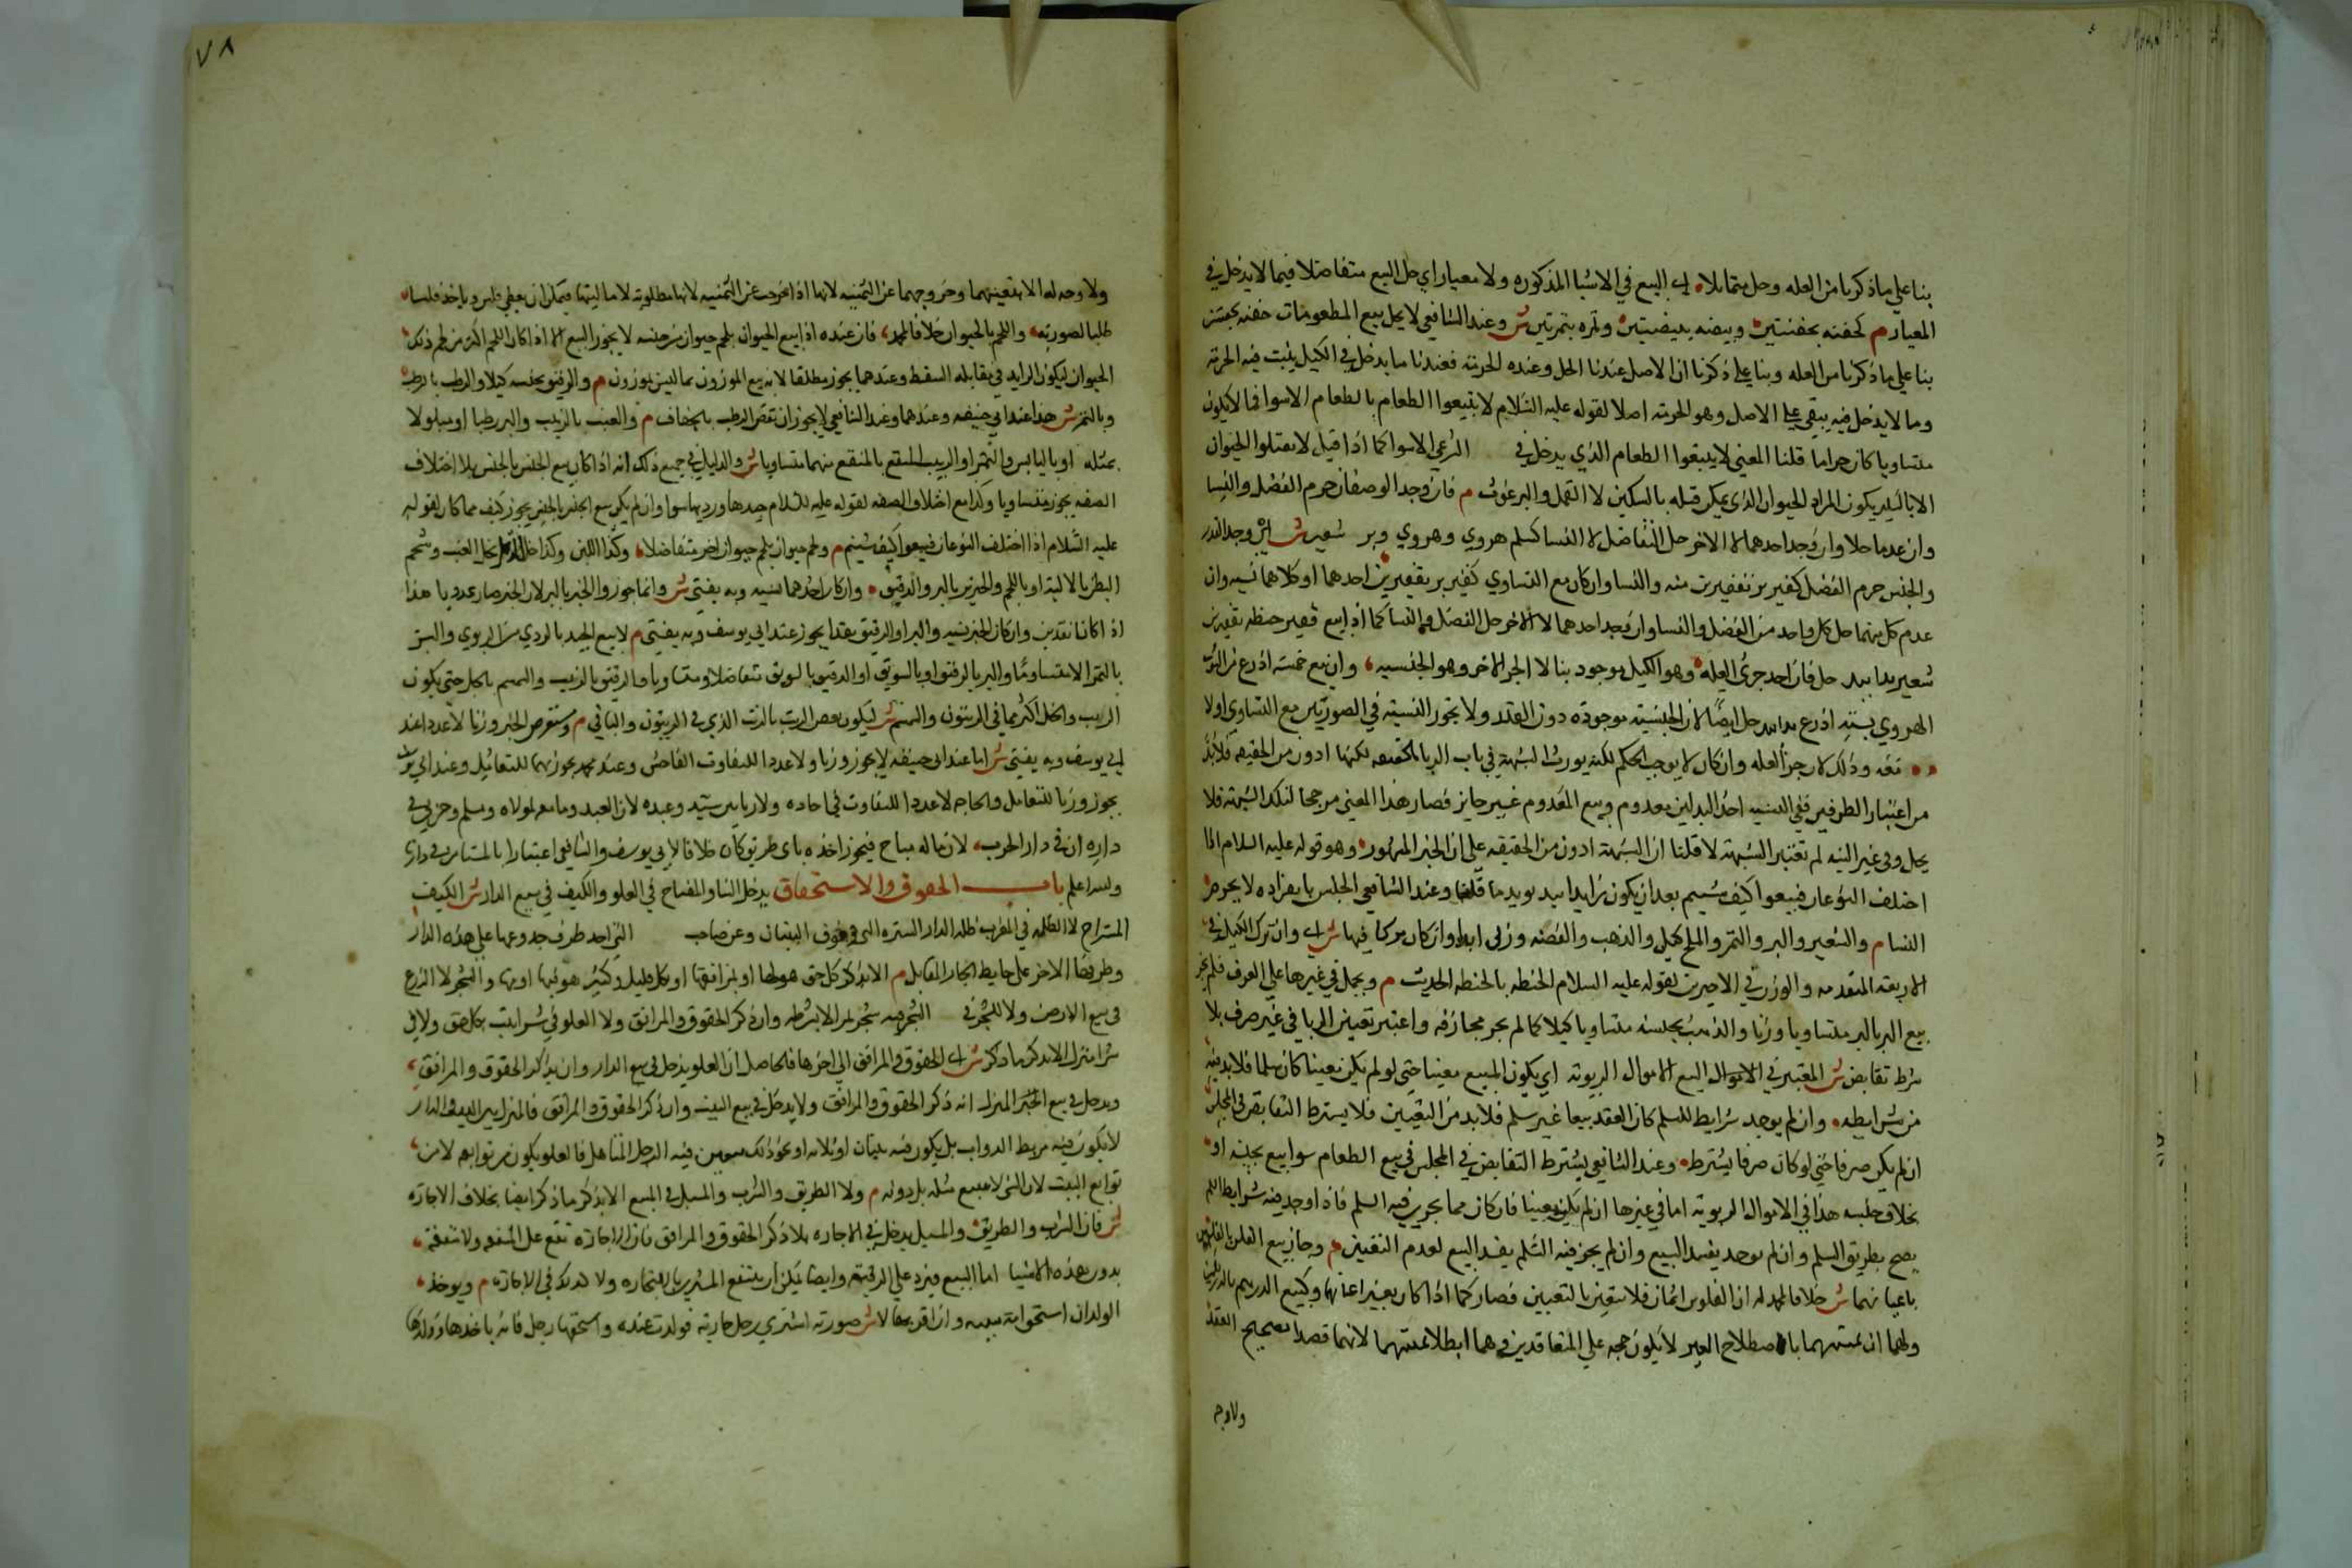 بنا علي ما ذكرنا من العله وحل متماثلا اي البيع في الاشيا المذكوره ولا معيار اي حل البيع متفاضلا فيما لا يدخل في
المعيار م كحفنه بحفنتين وبيضه ببيضتين وتمره بتمرتين ش وعند الشافعي لا يحل بيع المطعومات حفنه بحفنتين
بنا علي ما ذكرنا من العله وبنا علي ذكرنا ان الاصل عندنا الحل وعنده الحرمة فعندنا ما يدخل في الكيل يثبت فيه الحرمة
وما لا يدخل فيه يبقي علي الاصل وهو الحرمة اصلا لقوله عليه السلام لا تبيعوا الطعام بالطعام الا سوا فما لا يكون
متساويا كان حراما قلنا المعني لا تبيعوا الطعام الذي يدخل في الشرعي الا سوا كما اذا قيل لا تقتلوا الحيوان
الا بالسكين يكون المراد الحيوان الذي يمكن قتله بالسكين لا القمل والبرغوث م فان وجد الوصفان حرم الفضل والنسا
وان عدما حلا وان وجد احدهما لا الاخر حل التفاضل لا النسا كسلم هروي وهروي وبر شعير ش اي وجد القدر
والجنس حرم الفضل كقفيز بر بقفيزين منه والنسا وان كان مع التساوي كقفيز بر بقفيز احدهما او كلاهما نسيه وان
عدم كل منهما حل كل واحد من الفضل والنسا وان وجد احدهما لا الاخر حل الفضل لا النسا كما اذا بيع قفيز حنطه بقفيزين
شعير يدا بيد حل فان احد جزئ العله وهو الكيل موجود بنا لا الجز الاخر وهو الجنسيه وان بيع خمسة اذرع من الثوب
الهروي بسته اذرع يدا بيد حل ايضا لان الجنسية موجوده دون القدر ولا يجوز النسية في الصورتين مع التساوي اولا
وذلك لان جزأ العله وان كان لا يوجب الحكم لكنه يورث الشبهة في باب الربا بالحقيقه لكنها ادون من الحقيقه فلا بد
من اعتبار الطرفين ففي النسيه احد البدلين معدوم وبيع المعدوم غير جايز فصار هذا المعني مرجحا لتلك الشبهة فلا
يحل وفي غير النسيه لم تعتبر الشبهة لا قلنا ان الشبهة ادون من الحقيقه علي ان الخبر المشهور وهو قوله عليه السلام اذا
اختلف النوعان فبيعوا كيف شيتم بعد ان يكون يدا بيد يويد ما قلنا وعند الشافعي الجنس بانفراده لا يحرم
النسا م والشعير والبر والتمر والملح كيلي والذهب والفضه وزني ابدا وان كان تركا فيها ش اي وان ترك الكيل في
الاربعة المتقدمه والوزن في الاخيرين لقوله عليه السلام الحنطه بالحنطه الحديث م ويحمل في غيرها علي العرف فلم يجز
بيع البر بالبر متساويا وزنا والذهب بجنسه متساويا كيلا كما لم يجز مجازفه واعتبر تعيين الربا في غير صرف بلا
شرط تقابض ش المعتبر في البيع الاموال الربويه اي يكون المبيع معينا حتي لو لم يكن معينا كان سلما فلا بد فيه
من شرايطه وان لم يوجد شرايط السلم كان العقد بيعا غير سلم فلا بد من التعيين فلا يشترط التقابض في المجلس
ان لم يكن صرفا حتي لو كان صرفا يشترط وعند الشافعي يشترط التقابض في المجلس في بيع الطعام سوا بيع بجنسه او
بخلاف جنسه هذا في الاموال الربويه اما في غيرها ان لم يكن معينا فان كان مما يجري فيه السلم فاذا وجد فيه شرايط السلم
يصح بطريق السلم وان لم يوجد يفسد البيع وان لم يجز فيه السلم يفسد البيع لعدم التعيين م وجاز بيع الفلس بالفلسين
باعيانهما ش خلافا لمحمد له ان الفلوس اثمان فلا تتعين بالتعيين فصار كما اذا كان بغير اعيانها وكبيع الدرهم بالدرهمين
ولهما ان ثمنيتهما باصطلاح الغير لا يكون حجه علي المتعاقدين وهما ابطلا ثمنيتهما لانهما قصدا تصحيح العقد
ولا وجه
٧٨
ولا وجه له الا بتعينهما وخروجهما عن الثمنيه لانها اذا خرجت عن الثمنيه لانها مطلوبه لا ماليتها فيمكن ان يعطي فلس وياخذ فلسان
طلبا لصورته واللحم بالحيوان خلافا لمحمد فان عنده اذا بيع الحيوان بلحم حيوان من جنسه لا يجوز البيع الا اذا كان اللحم اكثر من لحم ذلك
الحيوان ليكون الزايد في مقابله السقط وعندهما يجوز مطلقا لانه بيع الموزون بما ليس بموزون م والدقيق بجنسه كيلا والرطب بالرطب
وبالتمر ش هذا عند ابي حنيفه وعندهما وعند الشافعي لا يجوز ان نقص الرطب بالجفاف م والعنب بالزبيب والبر رطبا او مبلولا
بمثله او باليابس والتمر او الزبيب المنقع بالمنقع منهما متساويا ش والدليل في جميع ذلك انه اذا كان بيع الجنس بالجنس بلا اختلاف
الصفه يجوز متساويا وكذا مع اختلاف الصفه لقوله عليه السلام جيدها ورديها سوا وان لم يكن بيع الجنس بالجنس يجوز كيف ما كان لقوله
عليه السلام اذا اختلف النوعان فبيعوا كيف شيتم م ولحم حيوان بلحم حيوان اخر متفاضلا وكذا اللبن وكذا خل الدقل بخل العنب وشحم
البطن بالاليه او باللحم والخبز بالبر والدقيق وان كان احدهما نسيه وبه يفتي ش وانما جوزوا الخبز بالبر لان الخبز صار عدديا هذا
اذا كانا نقدين وان كان الخبز نسيه والبر او الدقيق نقدا يجوز عند ابي يوسف وبه يفتي م لا بيع الجيد بالردي من الربوي والبسر
بالتمر الا متساويا والبر بالدقيق او بالسويق او الدقيق بالسويق متفاضلا ومتساويا والزيتون بالزيت والسمسم بالحل حتي يكون
الزيت والحل اكثر مما في الزيتون والسمسم ش ليكون بعض الزيت بالزيت الذي في الزيتون والباقي م ويستقرض الخبز وزنا لا عددا عند
ابي يوسف وبه يفتي ش اما عند ابي حنيفه لا يجوز وزنا ولا عددا للتفاوت الفاحش وعند محمد يجوز بهما للتعامل وعند ابي يوسف
يجوز وزنا للتعامل والحاجه لا عددا للتفاوت في احاده ولا ربا بين سيد وعبده لان العبد وما معه لمولاه ومسلم وحربي في
داره اي في دار الحرب لان ماله مباح فيجوز اخذه باي طريق كان خلافا لابي يوسف والشافعي اعتبارا بالمستامن في دارنا
والله اعلم باب الحقوق والاستحقاق يدخل البنا والمفتاح في العلو والكنيف في بيع الدار ش الكنيف
المستراح لا الظله في المغرب ظله الدار السدة التي فوق الباب وعن صاحب التي احد طرفي جذوعها علي هذه الدار
وطرفها الاخر علي حايط الجار المقابل م الا بذكر كل حق هو لها او بمرافقها او كل قليل وكثير هو فيها او منها والشجر لا الزرع
في بيع الارض ولا الثمر في الشجر فيه شجر ثمر الا بشرطه وان ذكر الحقوق والمرافق ولا العلو في شرا بيت بكل حق ولا في
شرا منزل الا بذكر ما ذكر ش اي الحقوق والمرافق الي اخرها فالحاصل ان العلو يدخل في بيع الدار وان لم يذكر الحقوق والمرافق
ويدخل في بيع المنزل ان ذكر الحقوق والمرافق ولا يدخل في بيع البيت وان ذكر الحقوق والمرافق فالمنزل بين البيت والدار
لا يكون فيه مربط الدواب بل يكون فيه بيتان او ثلاثه او نحو ذلك فيه الرجل المتاهل فالعلو يكون من توابعه لا من
توابع البيت لان الشي لا يستتبع مثله بل دونه م ولا الطريق والشرب والمسيل في البيع الا بذكر ما ذكر ايضا بخلاف الاجاره
ش فان الشرب والطريق والمسيل يدخل في الاجاره بلا ذكر الحقوق والمرافق فان الاجاره تقع علي المنفعه ولا منفعه
بدون هذه الاشيا اما البيع فيرد علي الرقبة وايضا يمكن ان ينتفع المشتري بالتجاره ولا كذلك في الاجاره م ويوخذ
الولد ان استحق امه ببينه وان اقر بها لا ش صورته اشتري رجل جاريه فولدت عنده واستحقها رجل فانه ياخذها وولدها